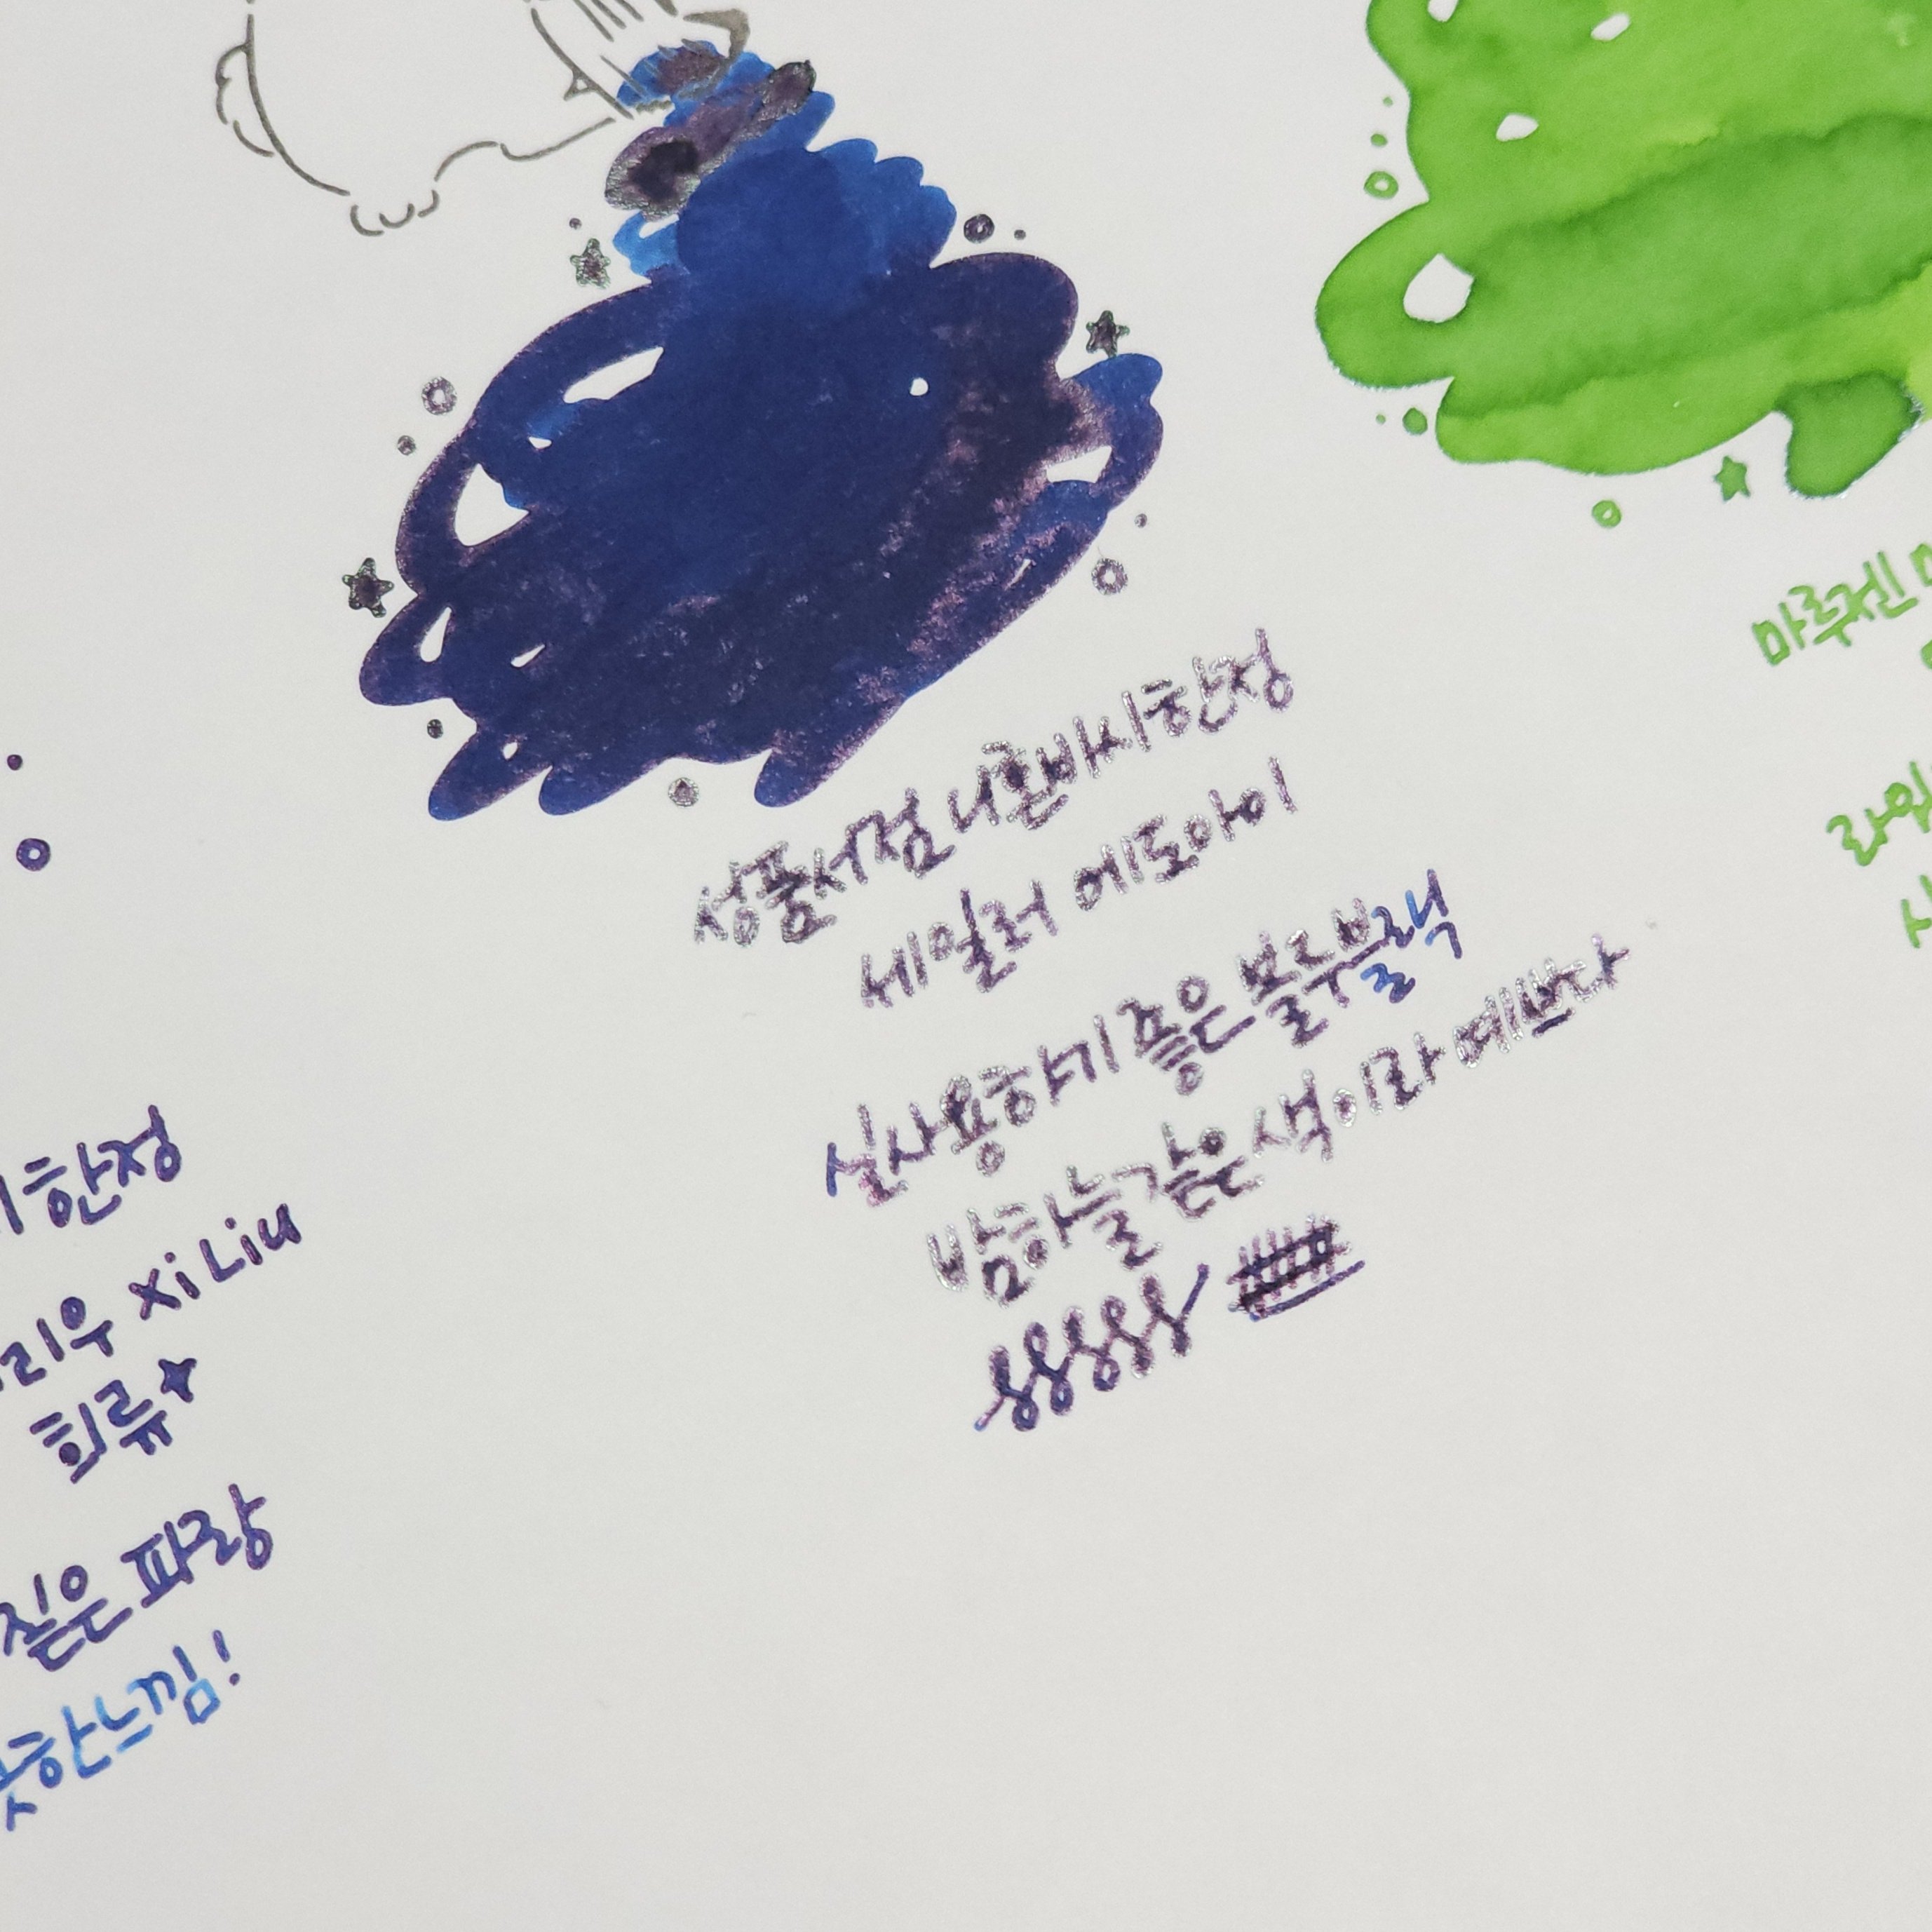 성품서점 니혼바시한정
세일러 에도아이
실사용하기 좋은 블루블랙
밤하늘 같은 색이라 예쁘다
한정
리우 xiLiu
희류
짙은 파랑
한느낌!
마루젠
라임